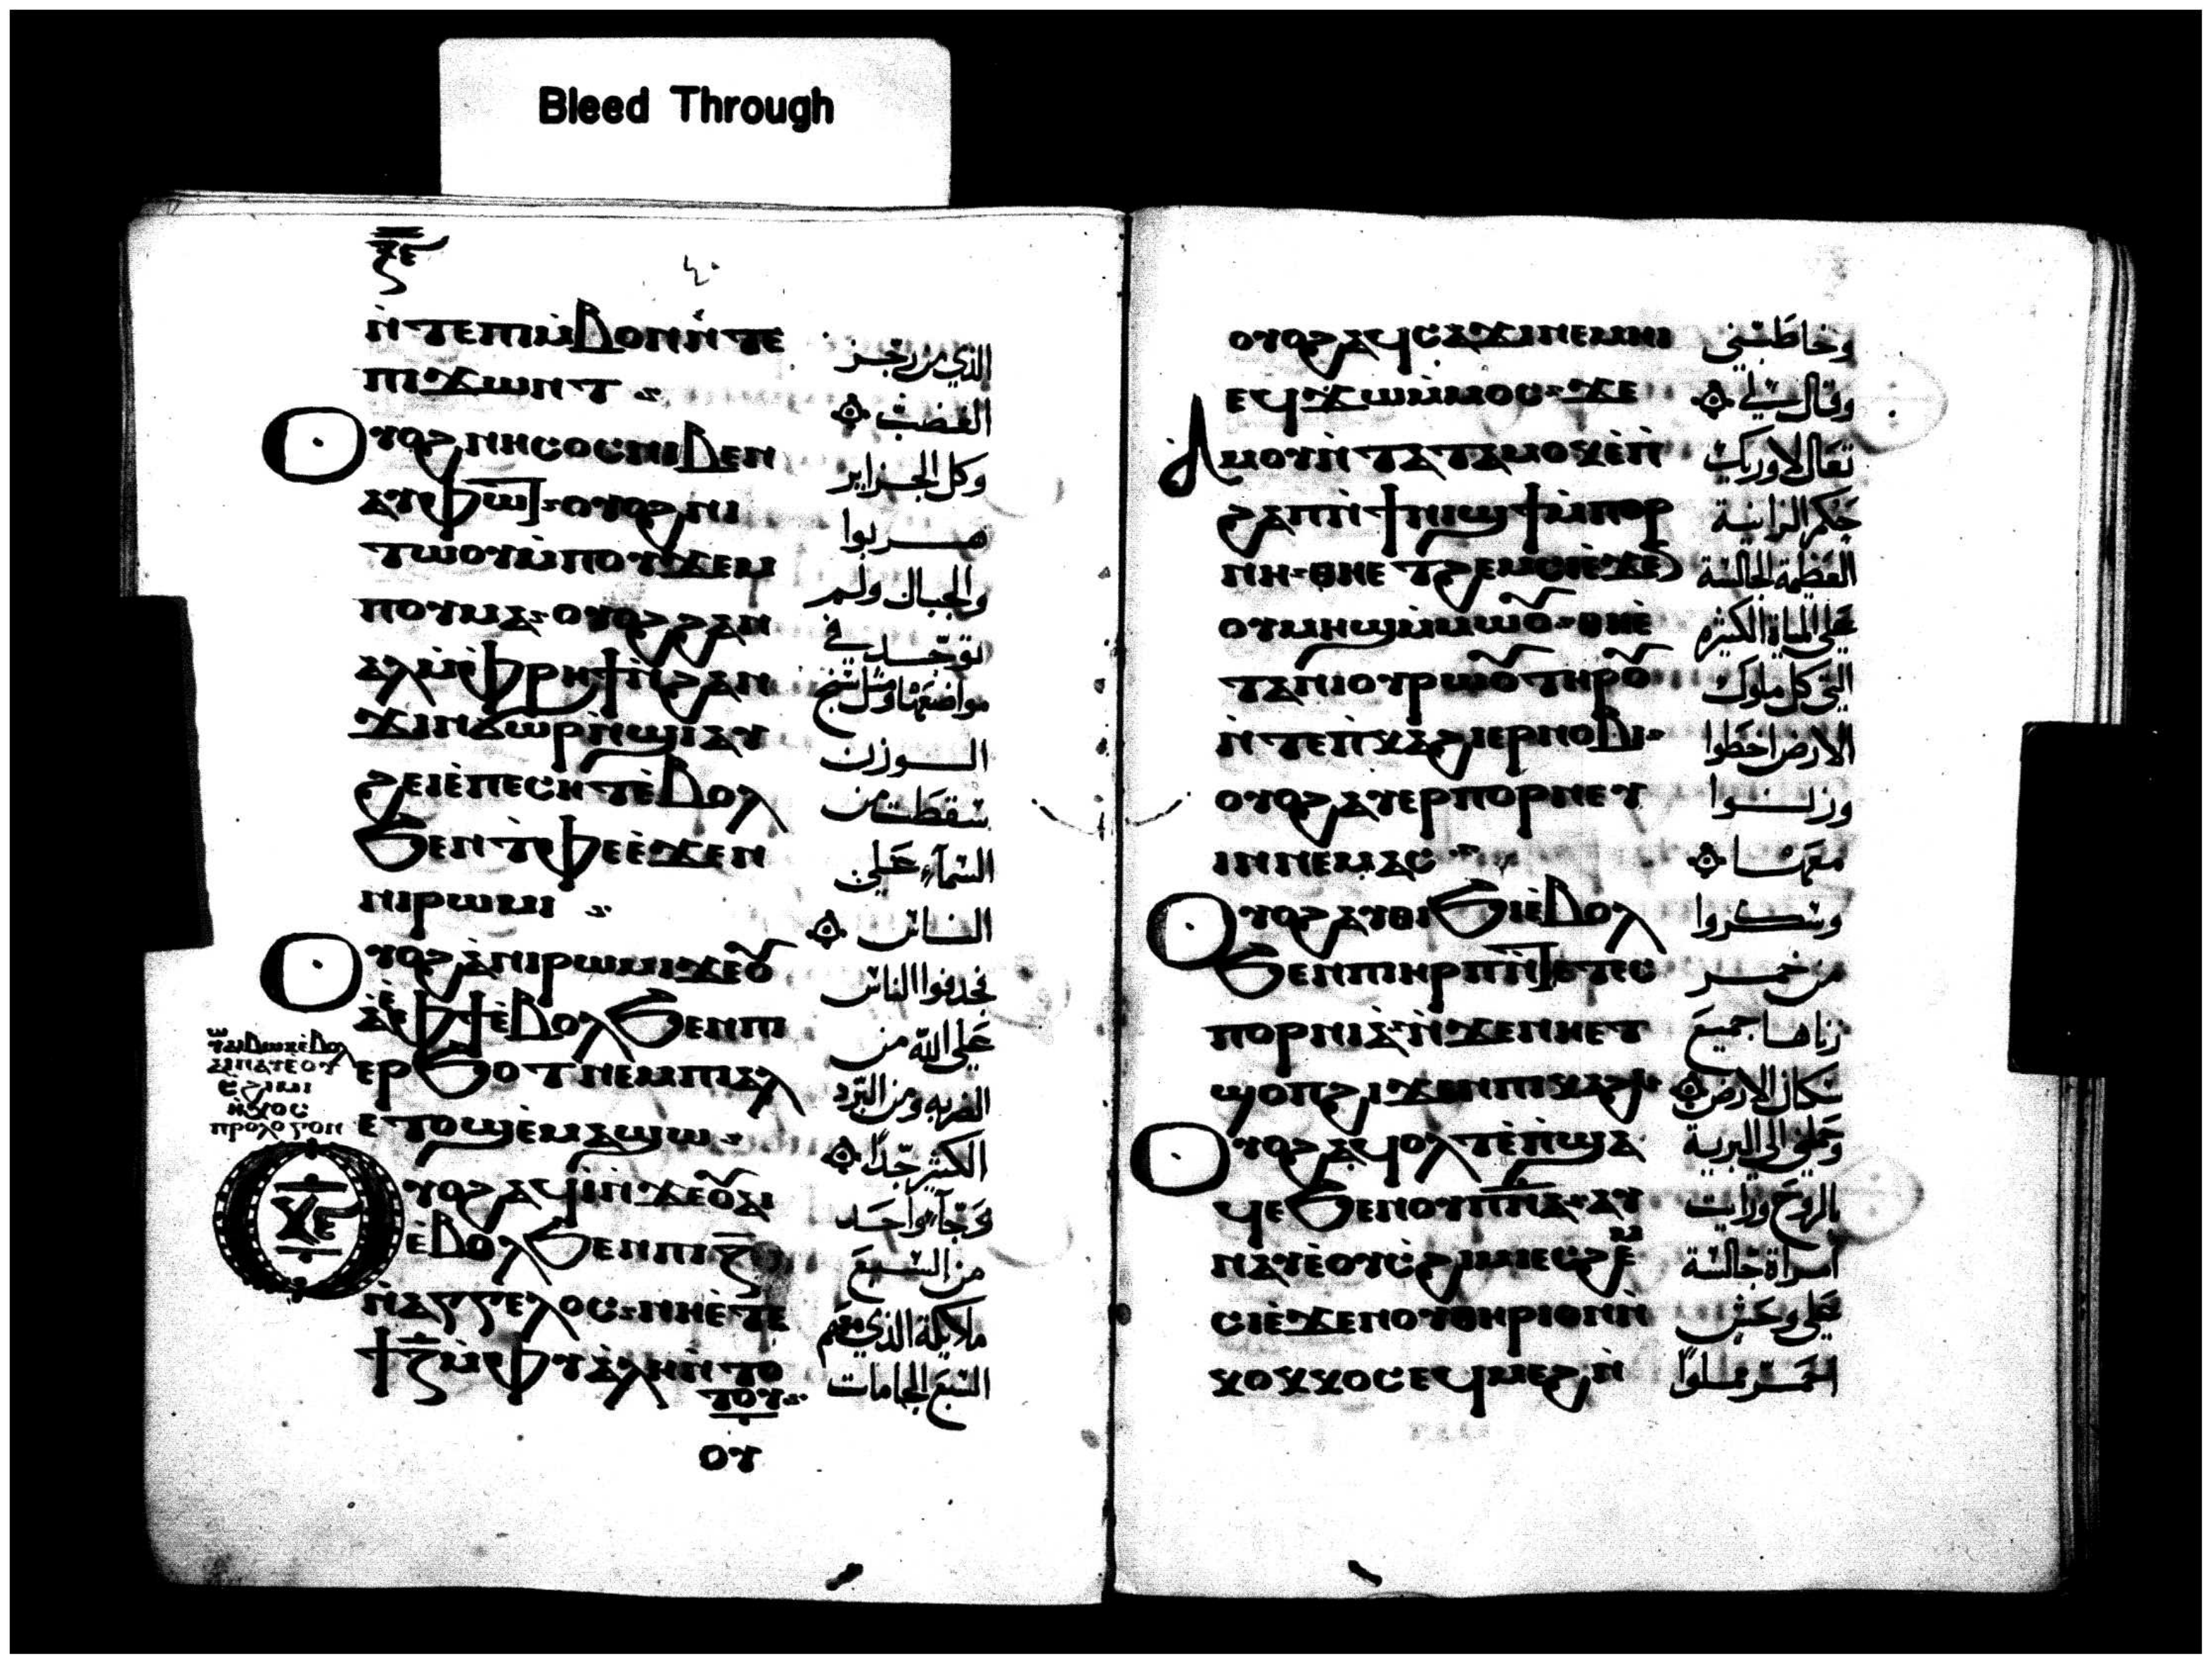 Bleed Through
ⲛ̀ⲧⲉⲡⲓⲙ̀ⲃⲟⲛ ⲛ̀ⲧⲉ
ⲡⲓϫⲱⲛⲧ
ⲟⲩⲟϩ ⲛⲏⲥⲟⲥ ⲛⲓⲃⲉⲛ
ⲁⲩⲫⲱⲧ ⲟⲩⲟϩ ⲛⲓ
ⲧⲱⲟⲩ ⲙ̀ⲡⲟⲩϫⲉⲙ
ⲡⲟⲩⲙⲁ ⲟⲩⲟϩ ϩⲁⲛ
ⲁⲗ ⲙ̀ⲫⲣⲏϯ ⲛ̀ϩⲁⲛ
ϫⲓⲛϭⲱⲣ ⲛ̀ϣⲓ ⲁⲩ
ϩⲉⲓ ⲉ̀ⲡⲉⲥⲏⲧ ⲉ̀ⲃⲟⲗ
ϧⲉⲛ ⲧ̀ⲫⲉ ⲉ̀ϫⲉⲛ
ⲛⲓⲣⲱⲙⲓ
ⲟⲩⲟϩ ⲁ̀ⲛⲓⲣⲱⲙⲓ ϫⲉⲟ̅
ⲁ̀ ⲉ̀ⲫϯ ⲉ̀ⲃⲟⲗ ϧⲉⲛ ⲡⲓ
ⲉⲣϧⲟⲧ ⲛⲉⲙ ⲡⲓⲁⲗ
ⲉⲧⲟϣ ⲉ̀ⲙⲁϣⲱ
ⲟⲩⲟϩ ⲁϥⲓ̀ ⲛ̀ϫⲉⲟ̅ⲁⲓ
ⲉ̀ⲃⲟⲗ ϧⲉⲛ ⲡⲓⲍ̅
ⲛ̀ⲁⲅⲅⲉⲗⲟⲥ ⲛⲏ ⲉ̀ⲧⲉ
ϯⲍ̅ ⲙ̀ⲫⲩⲁⲗⲏ ⲛ̀ⲧⲟ
ⲧⲟⲩ
ⲟⲩ
الذي من رجز
الغضب
وكل الجزاير
هربوا
والجبال ولم
توجد في
مواضعها ومثل سنج
الوزن
سقطت من
السماء على
الناس
فجدفوا الناس
على الله من
الضربه ومن البرد
الكثير جدًا
وجآء واحد
من السبع
ملايكة الذي معهم
السبع الجامات
ⲟⲩⲟϩ ⲁϥⲥⲁϫⲓ ⲛⲉⲙⲏⲓ
ⲉϥϫⲱⲙ̀ⲙⲟⲥ ϫⲉ
ⲁⲙⲟⲩ ⲛ̀ⲧⲁⲧⲁⲙⲟⲕ ⲉ̀ⲡ̀
ϩⲁⲡ ⲛ̀ϯⲛⲓϣϯ ⲙ̀ⲡⲟⲣ
ⲛⲏ ⲑⲏⲉⲧϩⲉⲙⲥⲓ ⲉ̀ϫⲉ
ⲟⲩⲙⲏϣ ⲙ̀ⲙⲱⲟ̅ ⲑⲏⲉ̀
ⲧⲁ ⲛⲓⲟⲩⲣⲱⲟ̅ ⲧⲏⲣⲟ̅
ⲛ̀ⲧⲉⲡ̀ⲕⲁϩⲓ ⲉⲣⲛⲟⲃⲓ
ⲟⲩⲟϩ ⲁⲩⲉⲣⲡⲟⲣⲛⲉⲩ
ⲓⲛ ⲛⲉⲙⲁⲥ
ⲟⲩⲟϩ ⲁⲩⲑⲓϧⲓ ⲉ̀ⲃⲟⲗ
ϧⲉⲛ ⲡⲓⲏⲣⲡ ⲛ̀ⲧⲉ ⲧⲉⲥ
ⲡⲟⲣⲛⲓⲁ̀ ⲛ̀ϫⲉⲛⲏⲉⲧ
ϣⲟⲡ ϩⲓϫⲉⲛ ⲡⲓⲕⲁϩⲓ
ⲟⲩⲟϩ ⲁϥⲟⲗⲧ ⲉ̀ⲡ̀ϣⲁ
ϥⲉ ϧⲉⲛ ⲟⲩⲡ̅ⲛ̅ⲁ̅ ⲁⲩ
ⲛⲁⲩ ⲉ̀ⲟⲩⲥ̀ϩⲓⲙⲓ ⲉⲥϩⲉ̅
ⲥⲓ ⲉ̀ϫⲉⲛ ⲟⲩⲑⲏⲣⲓⲟⲛ ⲛ̀
ⲕⲟⲕⲕⲟⲥ ⲉϥⲙⲉϩ ⲛ̀
وخاطبني
وقال لي
تعال لاوريك
حكم الزانية
العظيمة الجالسة
على المياة الكثيره
التي كل ملوك
الارض اخطوا
وزنوا
معها
وسكروا
من خمر
زناها جميع
سكان الارض
وحملني الى البرية
بالروح ورايت
امراة جالسة
على وحش